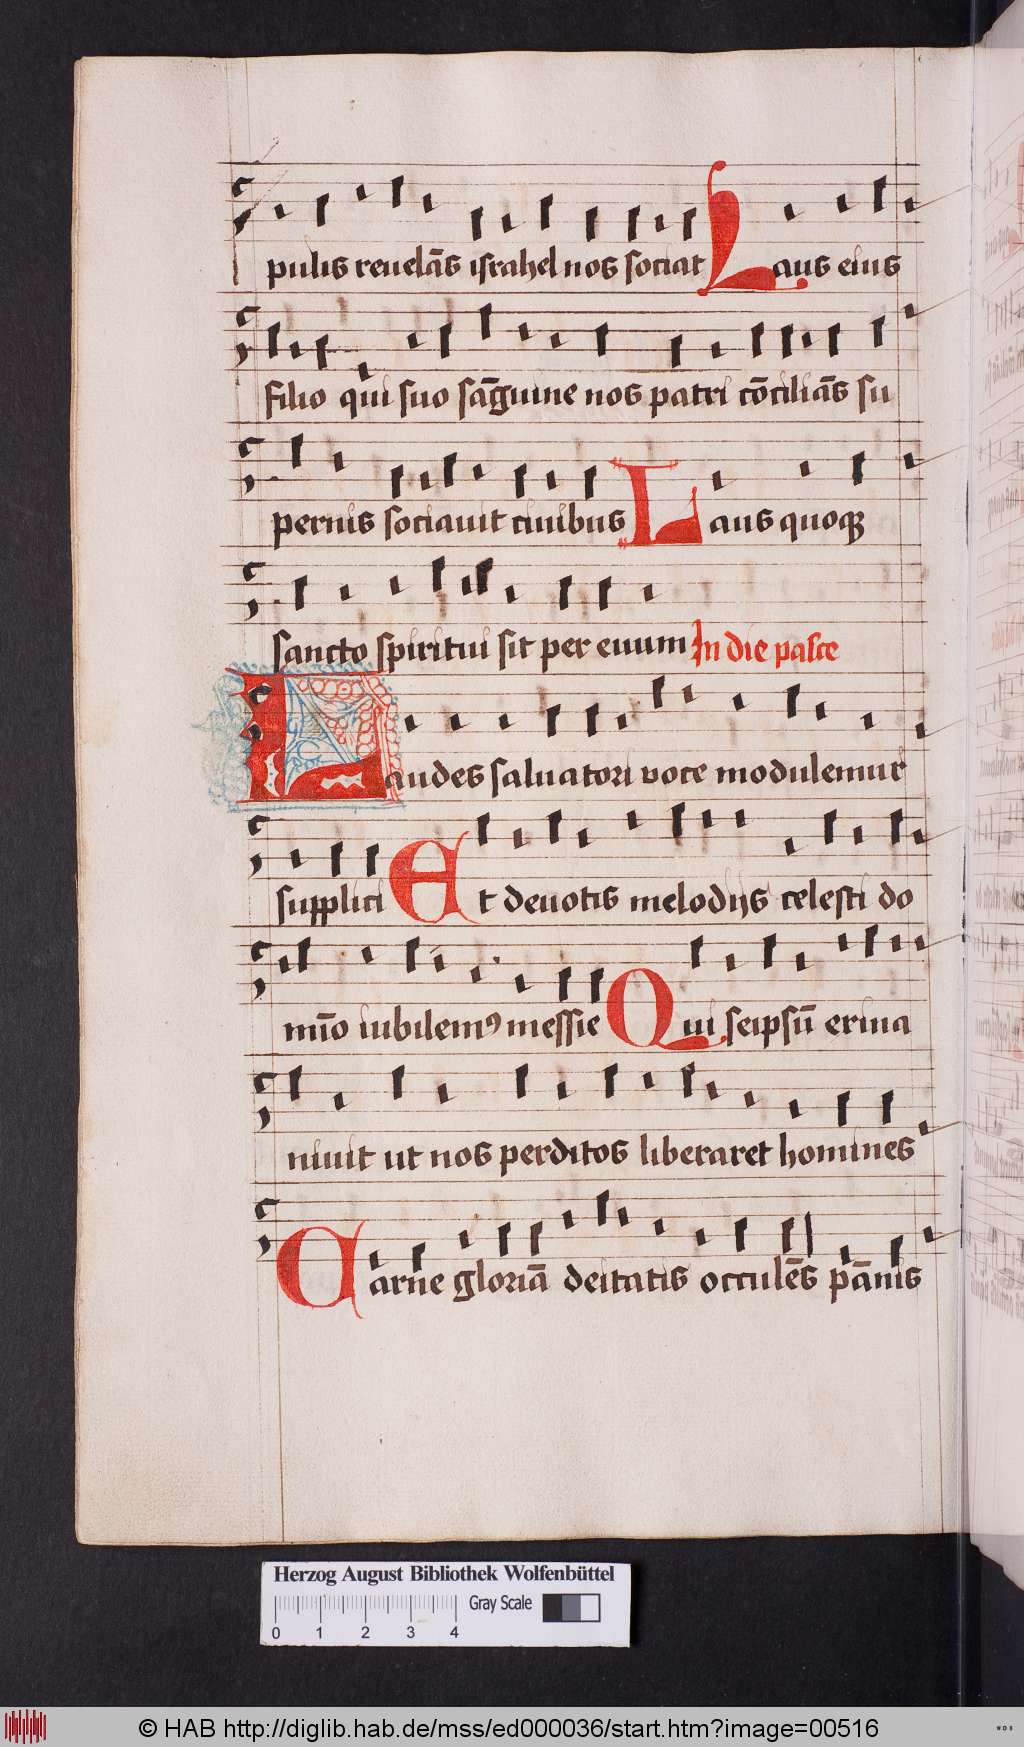 pulis reuelās israhel nos sociat Laus eius
filio qui suo sāguine nos patri cōciliās su
pernis sociauit ciuibus Laus quoqꝫ
sancto spiritui sit per euum In die pasce
Laudes saluatori voce modulemur
supplici Et deuotis melodijs celesti do
mīo iubilemꝰ messie Qui seipsū exina
niuit ut nos perditos liberaret homines
Carne gloriā deitatis occulēs pānis
Herzog August Bibliothek Wolfenbüttel
Gray Scale
0 1 2 3 4
© HAB http://diglib.hab.de/mss/ed000036/start.htm?image=00516